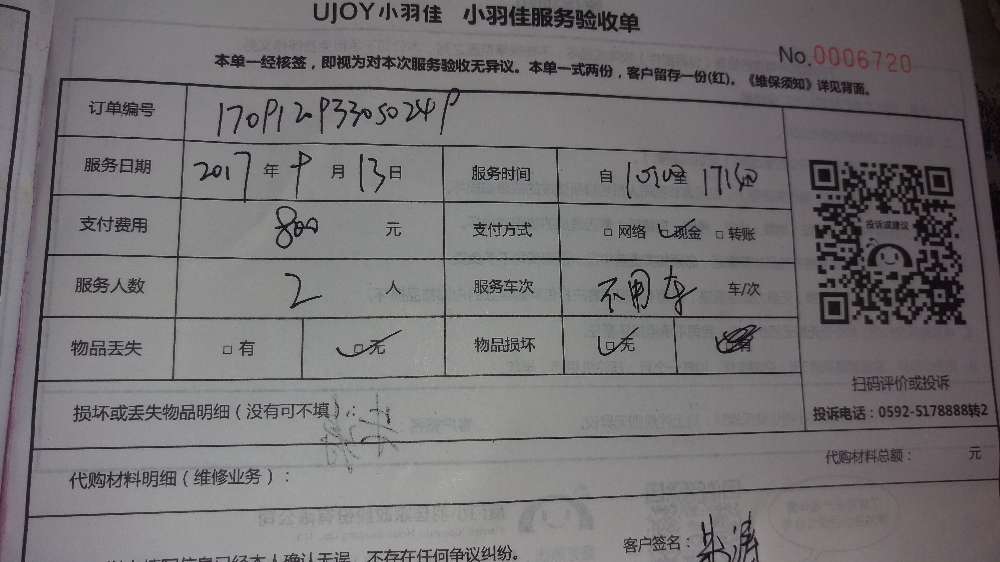 UJOY小羽佳 小羽佳服务验收单
No.0006720
本单一经核签，即视为对本次服务验收无异议。本单一式两份，客户留存一份(红)。《维保须知》详见背面。
订单编号 170912933050249
服务日期 2017 年 9 月 13 日 服务时间 自 至
支付费用 800 元 支付方式 □网络 □现金 □转账
投诉或建议
服务人数 2 人 服务车次 不用车 车/次
物品丢失 □有 □无 物品损坏 □无 □有
扫码评价或投诉
损坏或丢失物品明细（没有可不填）：
投诉电话：0592-5178888转2
代购材料明细（维修业务）： 代购材料总额： 元
客户签名：朱涛
信息已经本人确认无误，不存在任何争议纠纷。